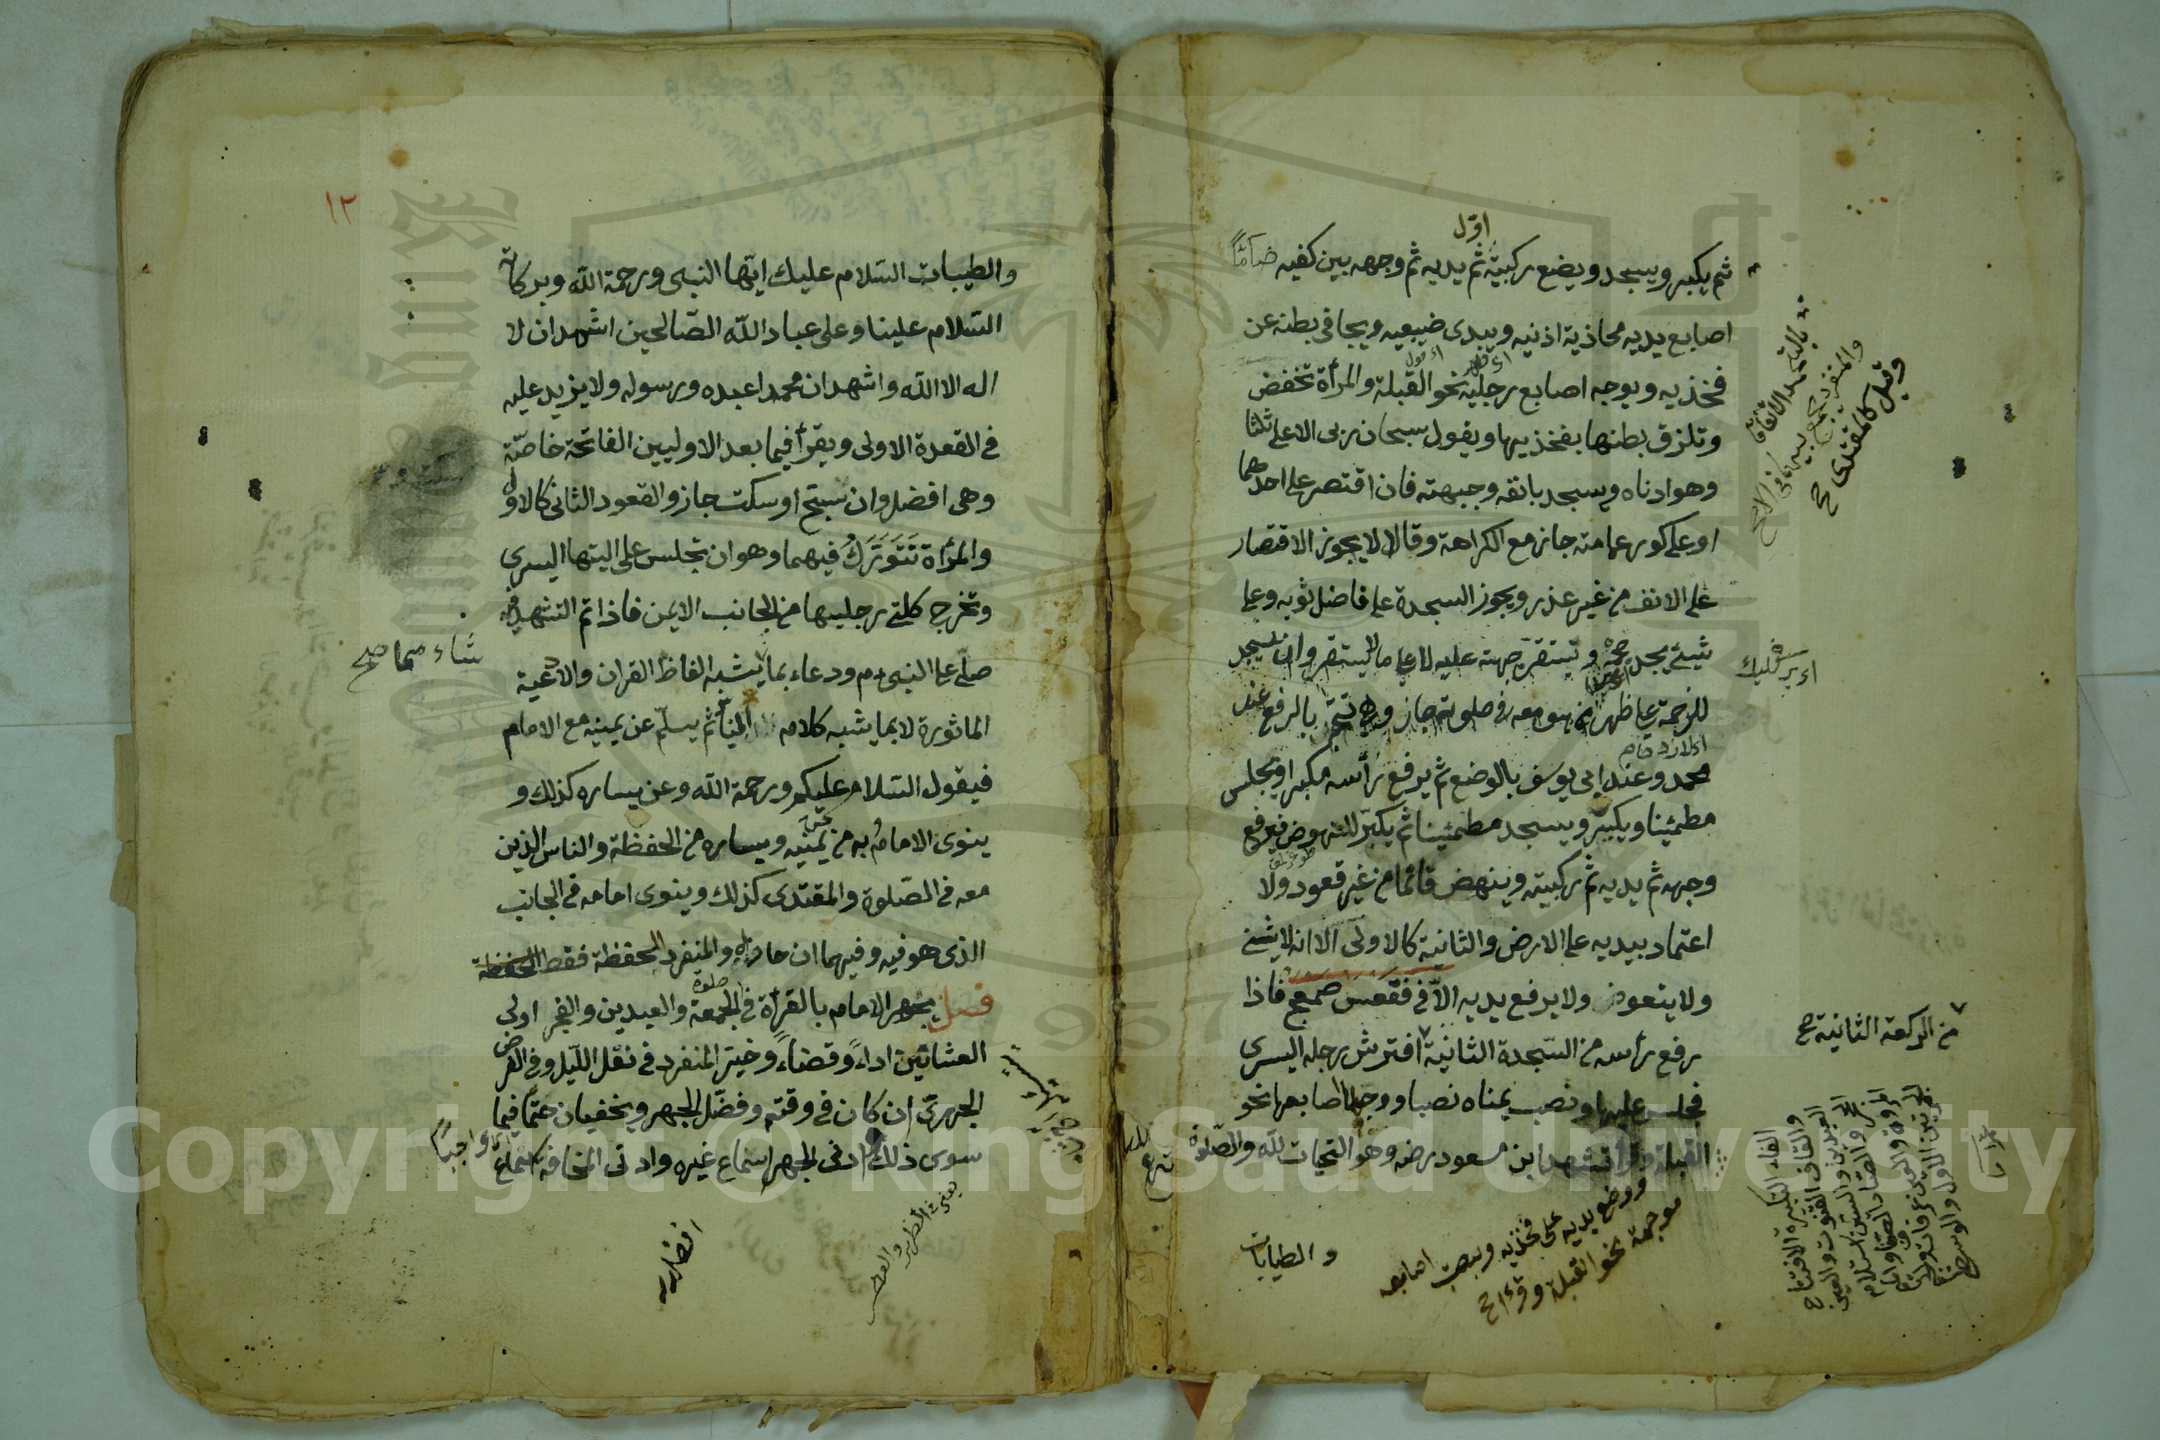 اول
ثم يكبر ويسجد ويضع ركبتيه ثم يديه ثم وجهه بين كفيه ضامًا
اصابع يديه محاذية اذنيه ويبدى ضبعيه ويجافى بطنه عن
فخذيه ويوجه اصابع رجليه نحو القبلة والمرأة تخفض
وتلزق بطنها بفخذيها ويقول سبحان ربى الاعلى ثلثا
وهو ادناه ويسجد بانفه وجبهته فان اقتصر على احدهما
او على كور عمامته جاز مع الكراهة وقالا لا يجوز الاقتصار
على الانف من غير عذر ويجوز السجدة على فاضل ثوبه وعلى
شيئ يجد حجمه وتستقر جبهته عليه لا على ما لا يستقر وان سجد
للزحمة على ظهر من هو معه فى صلوته جاز وهى تتم بالرفع عند
محمد وعند ابى يوسف بالوضع ثم يرفع رأسه مكبرا ويجلس
مطمئنا ويكبر ويسجد مطمئينا ثم يكبر للنهوض فيرفع
وجهه ثم يديه ثم ركبتيه وينهض قائما من غير قعود ولا
اعتماد بيديه على الارض والثانية كالاولى الا انه لا يثنى
ولا يتعوذ ولا يرفع يديه الا فى فقعس صمعج فاذا
رفع رأسه من السجدة الثانية افترش رجله اليسرى
فجلس عليها ونصب يمناه نصبا ووجه اصابعها نحو
القبلة وقرأ تشهد ابن مسعود رضه وهو التحيات لله والصلوة
والطيبات
وقيل كالمقتدى صح
من الركعة الثانية صح
ووضع يديه على فخذيه وبسط اصابعه
موجهة نحو القبلة وقرأ صح
١٢
والطيبات السلام عليك ايها النبى ورحمة الله وبركاته
السلام علينا وعلى عباد الله الصالحين اشهد ان لا
اله الا الله واشهد ان محمدا عبده ورسوله ولا يزيد عليه
فى القعدة الاولى ويقرأ فيما بعد الاوليين الفاتحة خاصة
وهى افضل وان سبح او سكت جاز والقعود الثانى كالاول
والمرأة تتورك فيهما وهو ان تجلس على اليتها اليسرى
وتخرج كلتى رجليها من الجانب الايمن فاذا تم التشهد فيه
صلى على النبى م ودعاء بما يشبه الفاظ القران والادعية
الماثورة لا بما يشبه كلام الناس ثم يسلم عن يمينه مع الامام
فيقول السلام عليكم ورحمة الله وعن يساره كذلك و
ينوى الامام به من عن يمينه ويساره من الحفظة والناس الذين
معه فى الصلوة والمقتدى كذلك وينوى امامه فى الجانب
الذى هو فيه وفيهما ان حاذاه والمنفرد الحفظة فقط
فصل يجهر الامام بالقرأة فى الجمعة والعيدين والفجر اولى
العشائين اداءً وقضاءً وخير المنفرد فى نفل الليل وفى الفرض
الجهرى ان كان فى وقته وفضل الجهر ويخفيان حتما فيما
سوى ذلك وادنى الجهر اسماع غيره وادنى المخافة اسماع
شاء مما صح
واجبًا
يعنى الظهر والعصر